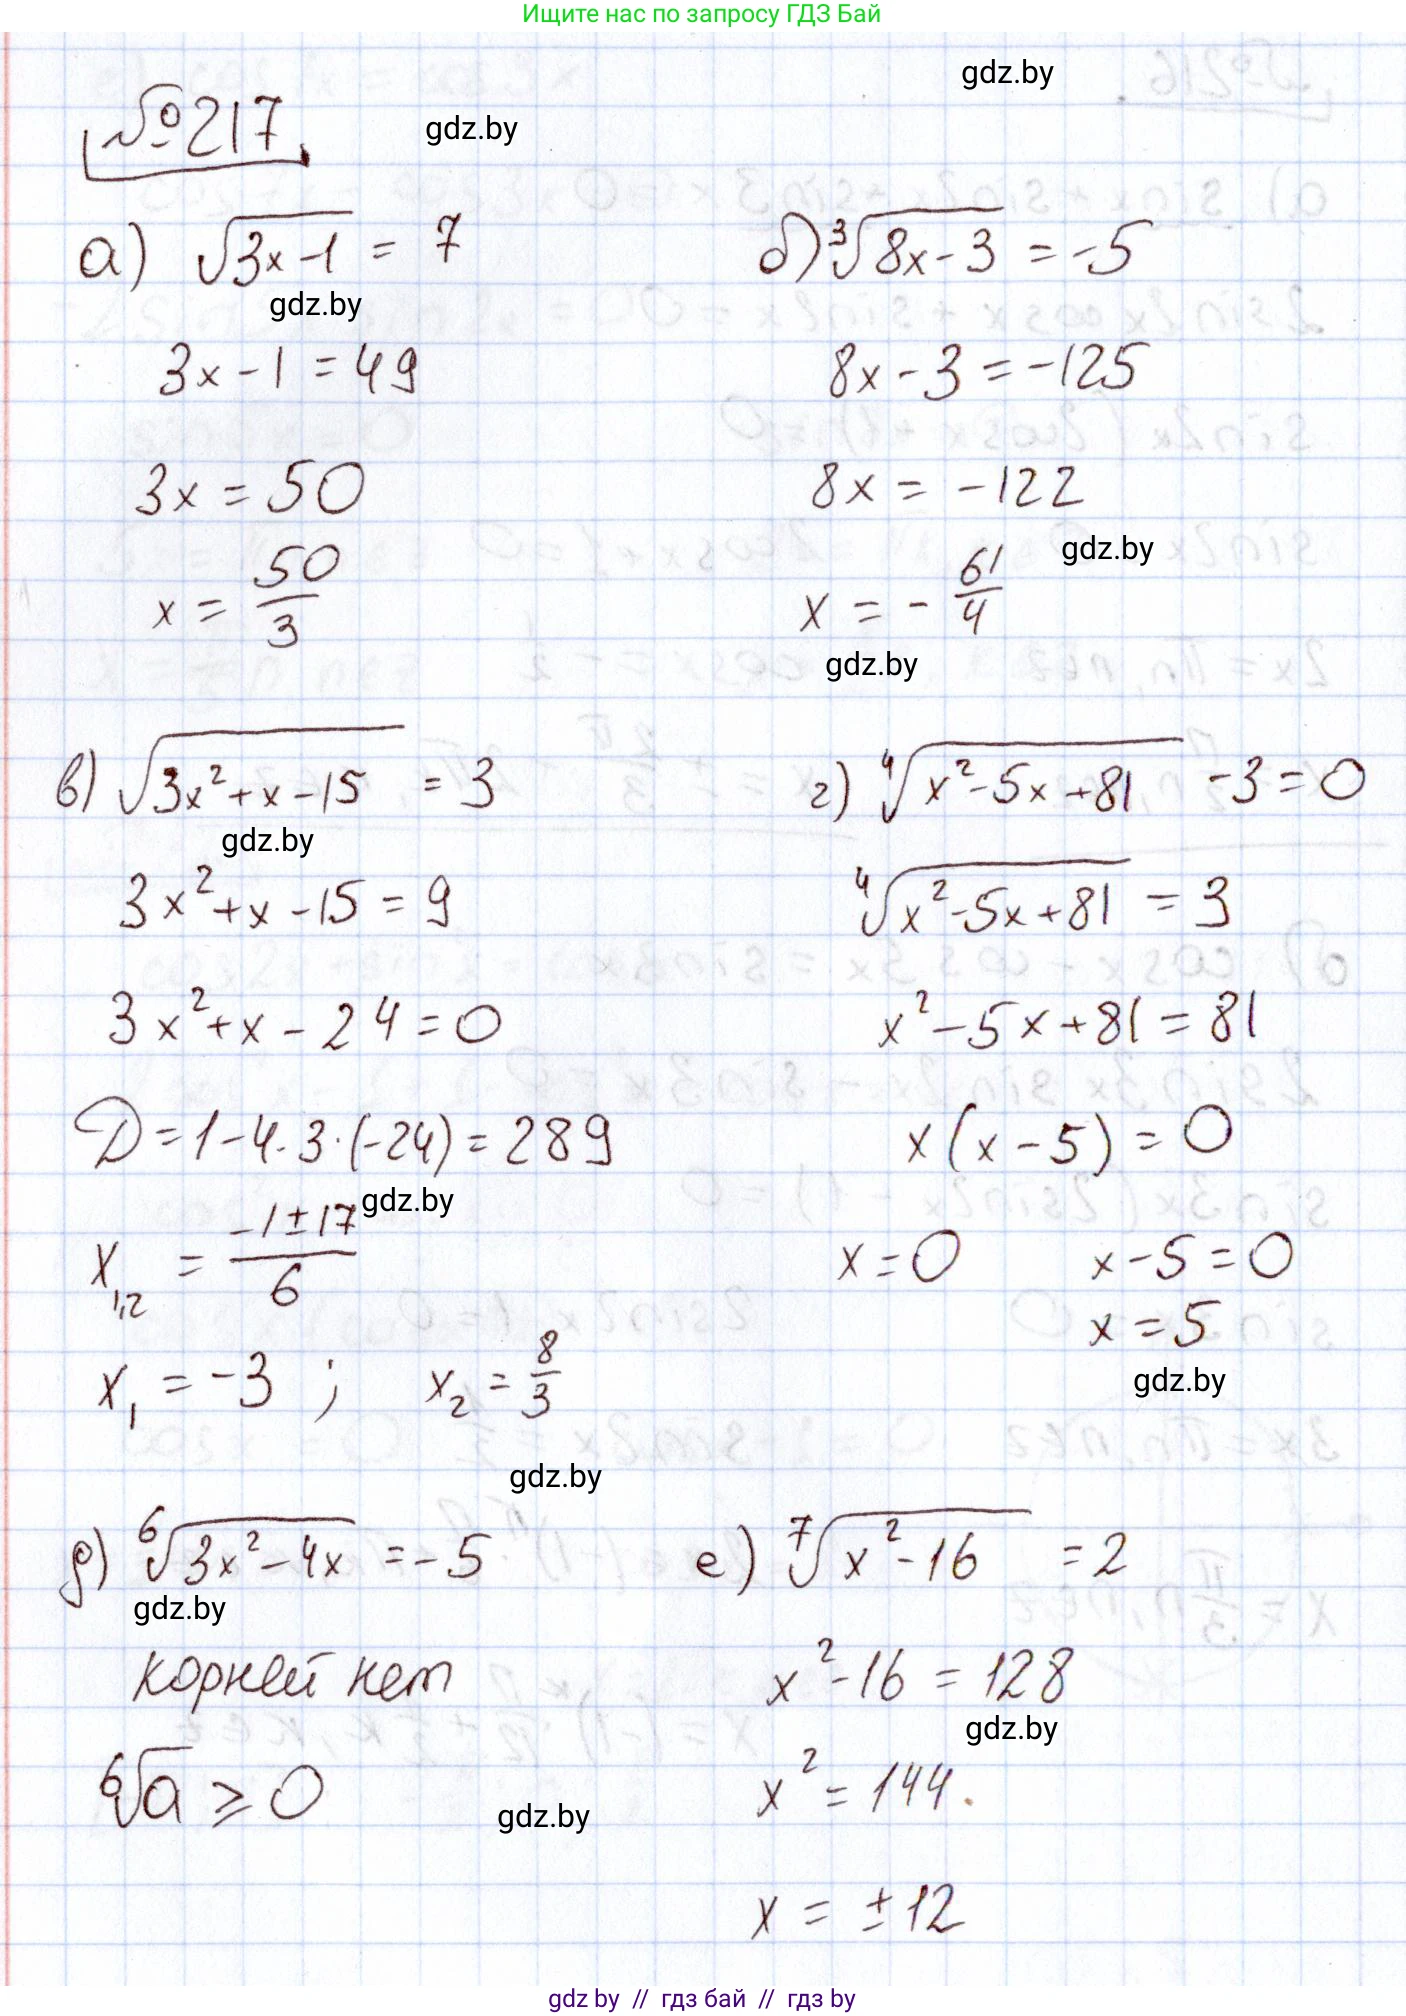 Ищите нас по запросу ГДЗ Бай
gdz.by
№217.
gdz.by
а) √(3x-1) = 7
gdz.by
3x - 1 = 49
3x = 50
x = 50/3
б) ∛(8x-3) = -5
8x - 3 = -125
8x = -122
gdz.by
x = - 61/4
gdz.by
в) √(3x²+x-15) = 3
gdz.by
3x²+x-15 = 9
3x²+x-24 = 0
D = 1-4·3·(-24) = 289
gdz.by
x₁,₂ = (-1±17)/6
x₁ = -3 ; x₂ = 8/3
gdz.by
г) ∜(x²-5x+81) -3 = 0
∜(x²-5x+81) = 3
x²-5x+81 = 81
x(x-5) = 0
x = 0 x-5 = 0
x = 5
gdz.by
д) ⁶√(3x²-4x) = -5
gdz.by
корней нет
⁶√a ⩾ 0
gdz.by
е) ⁷√(x²-16) = 2
x²-16 = 128
gdz.by
x² = 144.
x = ±12
gdz by // гдз бай // гдз by